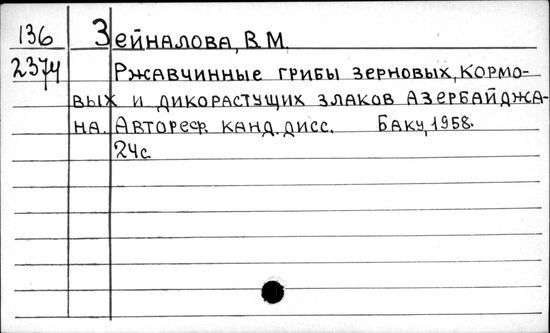 136 Зейналова, В.М.
2374 Ржавчинные грибы зерновых, кормо-
вых и дикорастущих злаков Азербайджа-
на. Автореф. канд. дисс. Баку, 1958.
24с.